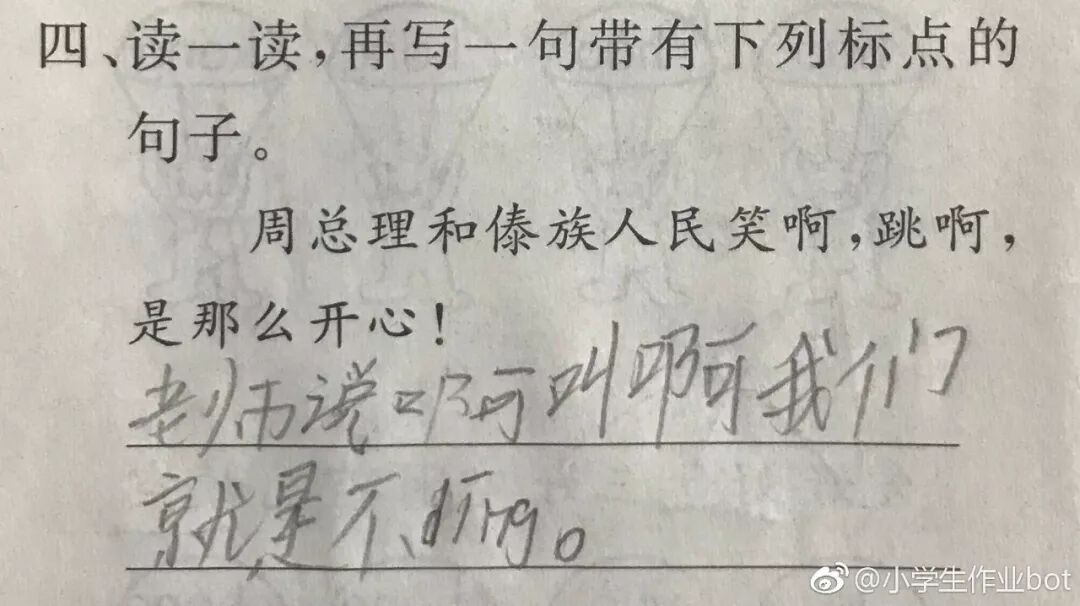 四、读一读,再写一句带有下列标点的
句子。
周总理和傣族人民笑啊,跳啊,
是那么开心!
老师说啊叫啊我们
就是不tīng。
@小学生作业bot